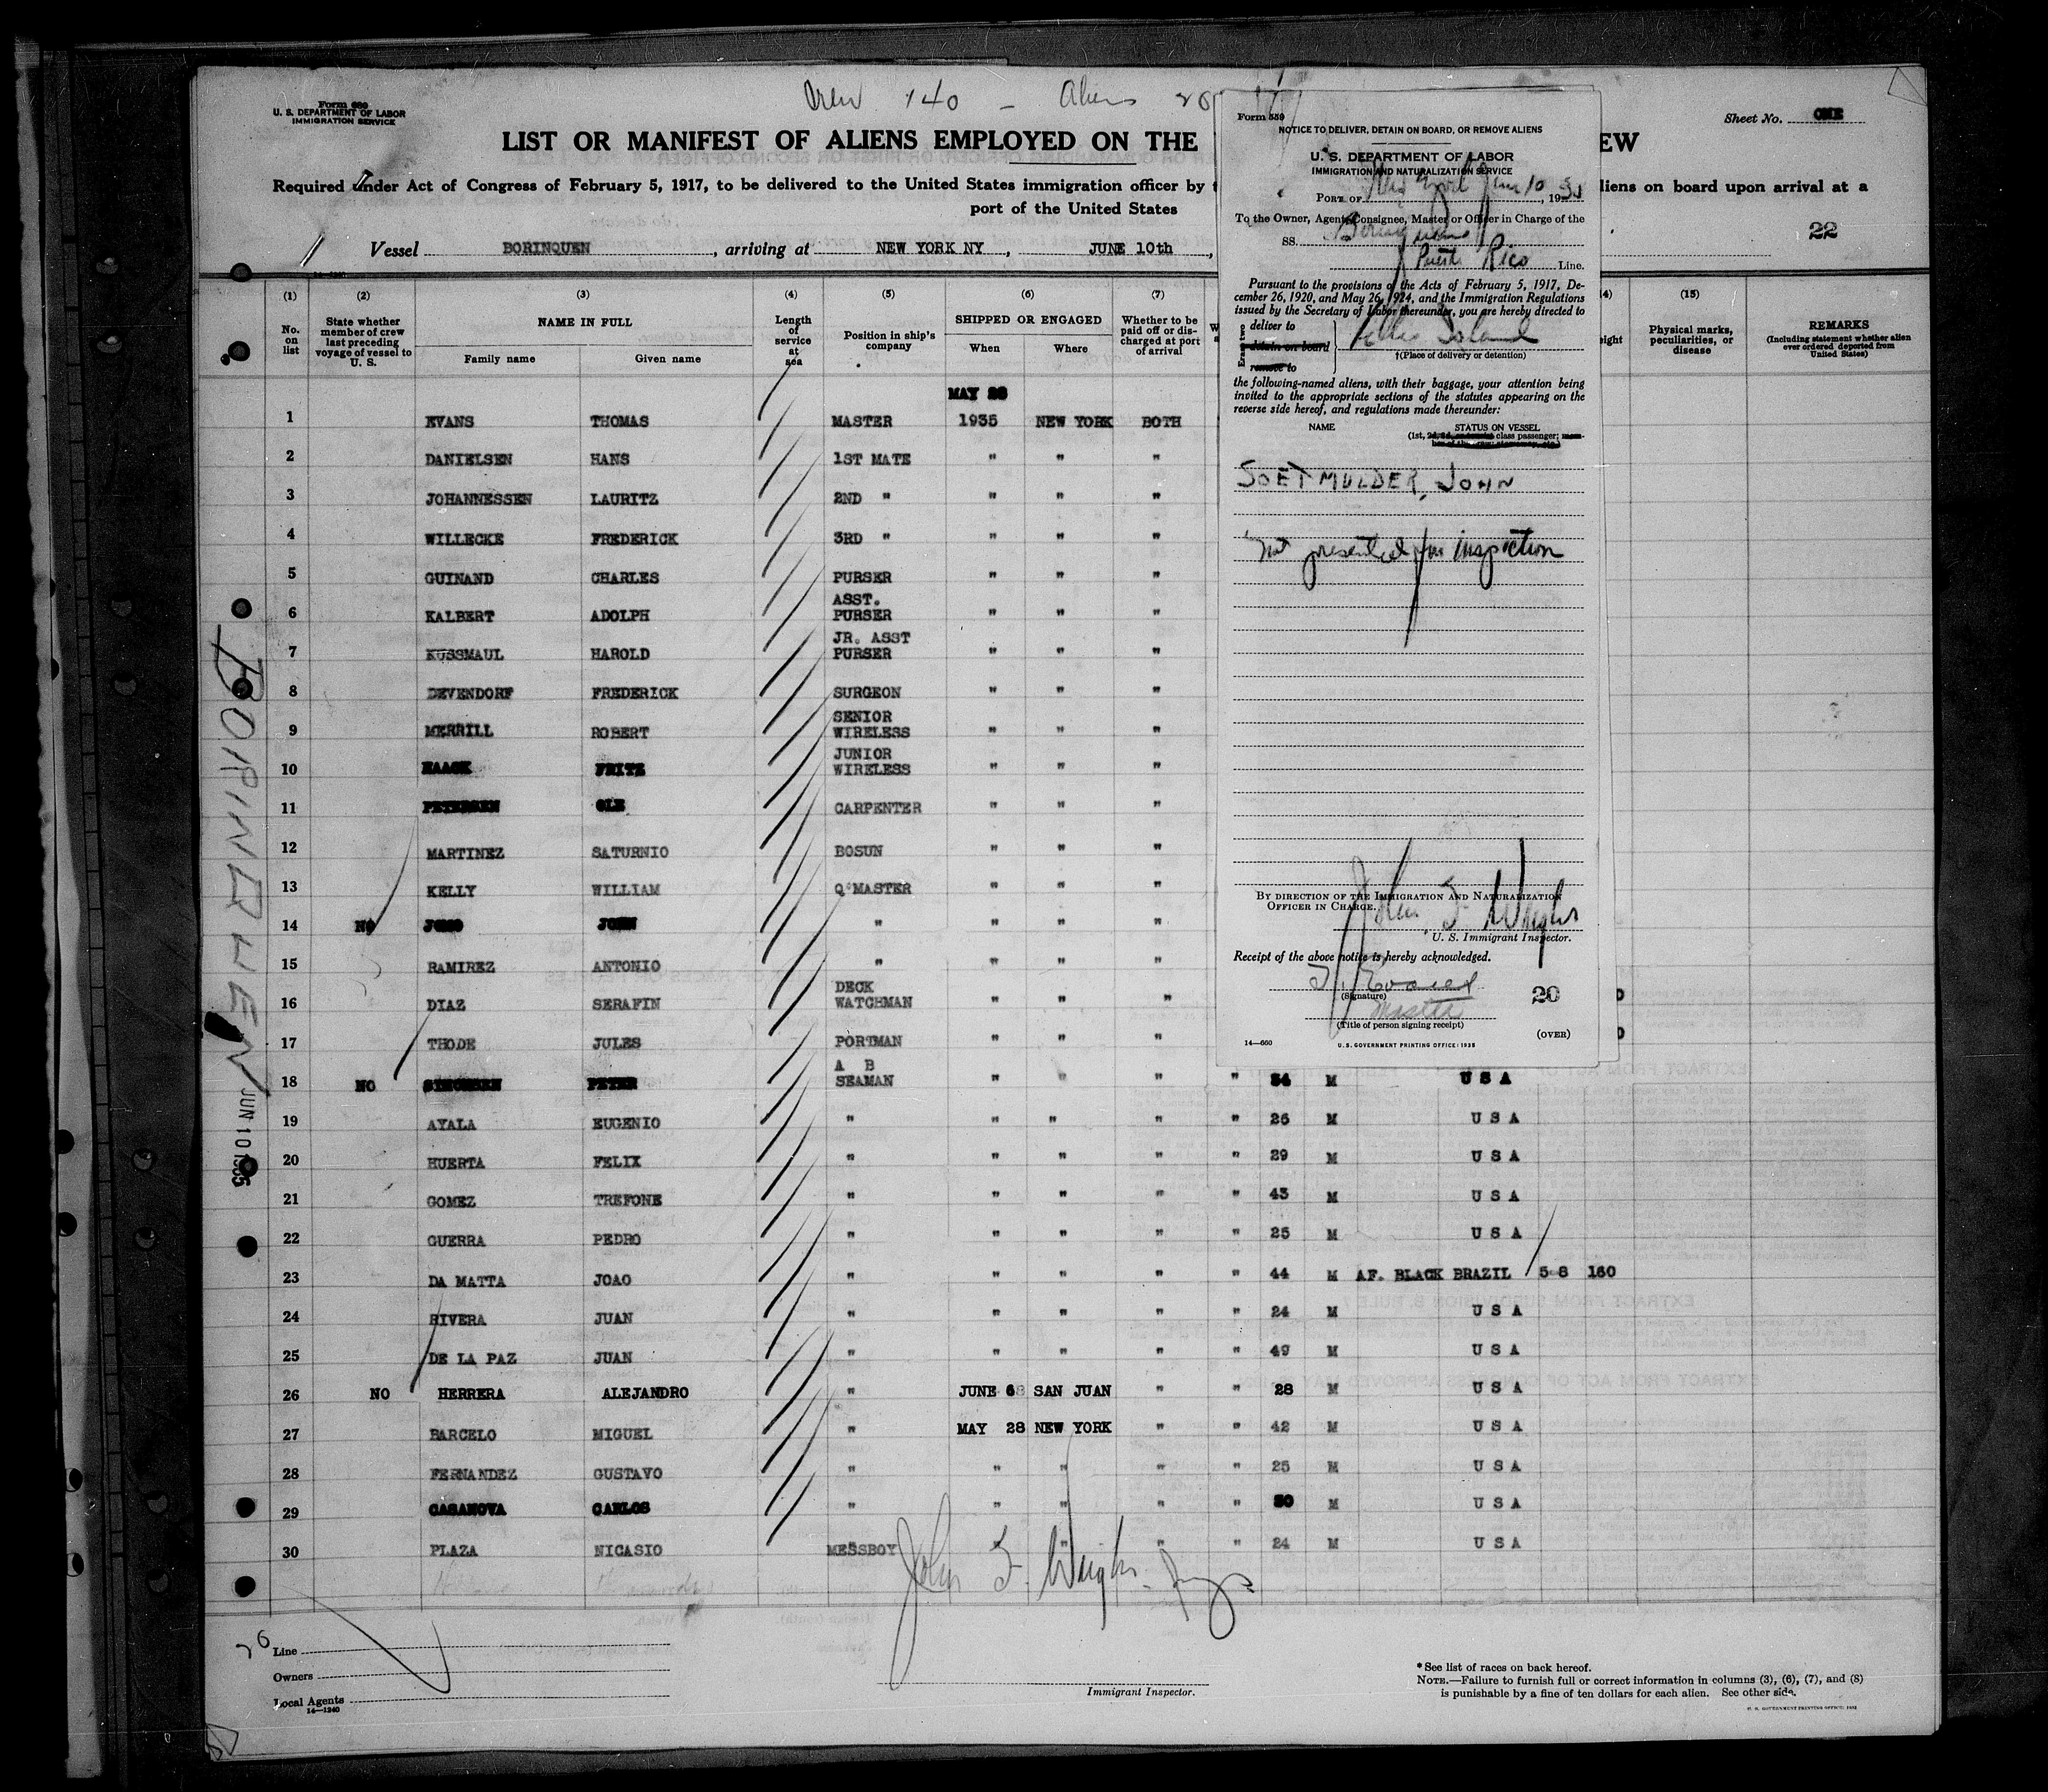 Crew 140 - Aliens
Form 680
U. S. DEPARTMENT OF LABOR
IMMIGRATION SERVICE
Sheet No. ONE
LIST OR MANIFEST OF ALIENS EMPLOYED ON THE EW
Required under Act of Congress of February 5, 1917, to be delivered to the United States immigration officer by liens on board upon arrival at a
port of the United States
Vessel BORINQUEN, arriving at NEW YORK NY, JUNE 10th,
22
14—1240
(1) (2) (3) (4) (5) (6) (7) (15)
No. on list
State whether member of crew last preceding voyage of vessel to U. S.
NAME IN FULL
Family name Given name
Length of service at sea
Position in ship's company
SHIPPED OR ENGAGED
When Where
Whether to be paid off or discharged at port of arrival
Physical marks, peculiarities, or disease
REMARKS
(Including statement whether alien ever ordered deported from United States)
MAY 28
1 EVANS THOMAS MASTER 1935 NEW YORK BOTH
2 DANIELSEN HANS 1ST MATE " " "
3 JOHANNESSEN LAURITZ 2ND " " " "
4 WILLECKE FREDERICK 3RD " " " "
5 GUINAND CHARLES PURSER " " "
6 KALBERT ADOLPH ASST. PURSER " " "
7 KUSSMAUL HAROLD JR. ASST PURSER " " "
8 DEVENDORF FREDERICK SURGEON " " "
9 MERRILL ROBERT SENIOR WIRELESS " " "
10 HAACK FRITZ JUNIOR WIRELESS " " "
11 PETERSEN OLE CARPENTER " " "
12 MARTINEZ SATURNIO BOSUN " " "
13 KELLY WILLIAM Q'MASTER " " "
14 NO JOHN " " " "
15 RAMIREZ ANTONIO " " " "
16 DIAZ SERAFIN DECK WATCHMAN " " "
17 THODE JULES PORTMAN " " "
18 NO SIMONSEN PETER A B SEAMAN " " " " 34 M U S A
19 AYALA EUGENIO " " " " " 26 M U S A
20 HUERTA FELIX " " " " " 29 M U S A
21 GOMEZ TREFONE " " " " " 43 M U S A
22 GUERRA PEDRO " " " " " 25 M U S A
23 DA MATTA JOAO " " " " " 44 M AF. BLACK BRAZIL 5 8 160
24 RIVERA JUAN " " " " " 24 M U S A
25 DE LA PAZ JUAN " " " " " 49 M U S A
26 NO HERRERA ALEJANDRO " JUNE 6 SAN JUAN " " 28 M U S A
27 BARCELO MIGUEL " MAY 28 NEW YORK " " 42 M U S A
28 FERNANDEZ GUSTAVO " " " " " 25 M U S A
29 CASANOVA CARLOS " " " " " 30 M U S A
30 PLAZA NICASIO MESSBOY " " " " 24 M U S A
John F. Wright
Line
Owners
Local Agents
14—1240
Immigrant Inspector.
* See list of races on back hereof.
NOTE.—Failure to furnish full or correct information in columns (3), (6), (7), and (8)
is punishable by a fine of ten dollars for each alien. See other side.
U. S. GOVERNMENT PRINTING OFFICE: 1932
BORINQUEN
JUN 10 1935
Form 559
NOTICE TO DELIVER, DETAIN ON BOARD, OR REMOVE ALIENS
U. S. DEPARTMENT OF LABOR
IMMIGRATION AND NATURALIZATION SERVICE
PORT OF New York June 10, 1935
To the Owner, Agent, Consignee, Master or Officer in Charge of the
SS. Borinquen
Puerto Rico Line.
Pursuant to the provisions of the Acts of February 5, 1917, December 26, 1920, and May 26, 1924, and the Immigration Regulations
issued by the Secretary of Labor thereunder, you are hereby directed to
Erase two
deliver to
detain on board
remove to
Ellis Island
†(Place of delivery or detention)
the following-named aliens, with their baggage, your attention being
invited to the appropriate sections of the statutes appearing on the
reverse side hereof, and regulations made thereunder:
NAME STATUS ON VESSEL
SOETMULDER, JOHN
Not presented for inspection
BY DIRECTION OF THE IMMIGRATION AND NATURALIZATION
OFFICER IN CHARGE.
John F. Wright
U. S. Immigrant Inspector.
Receipt of the above notice is hereby acknowledged.
T. Evans
(Signature)
Master
(Title of person signing receipt)
20
(OVER)
14—660
U. S. GOVERNMENT PRINTING OFFICE: 1935